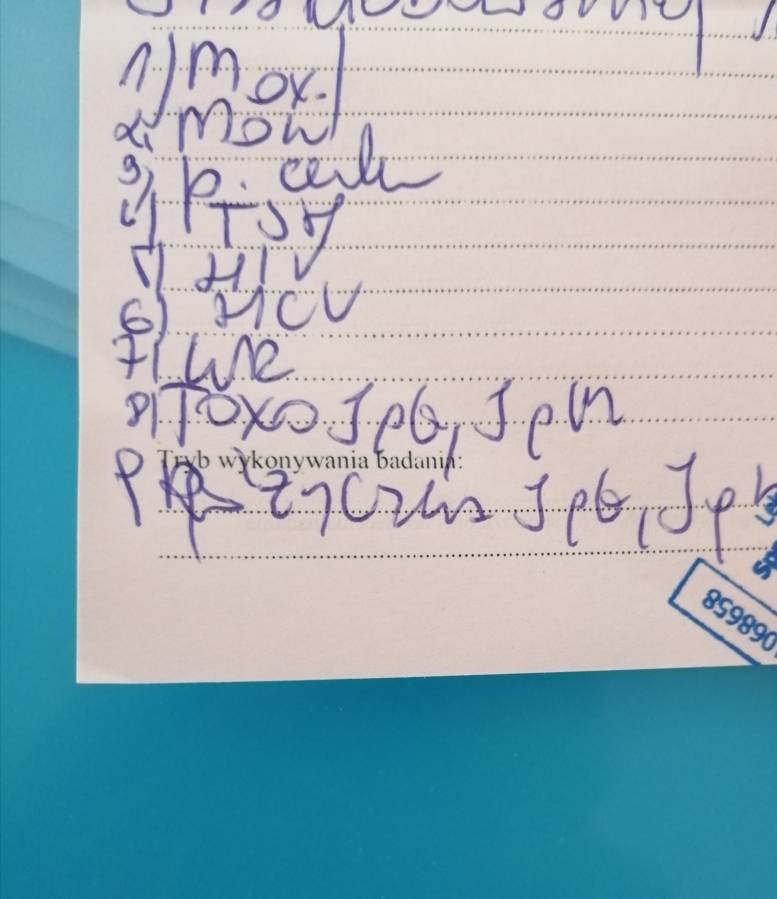 1) Mox.
2) Mocz
3) p. ciała
4) TSH
5) HIV
6) HCV
7) WR
8) Toxo IgG, IgM
Tryb wykonywania badania:
9) Różyczka IgG, IgM
068658